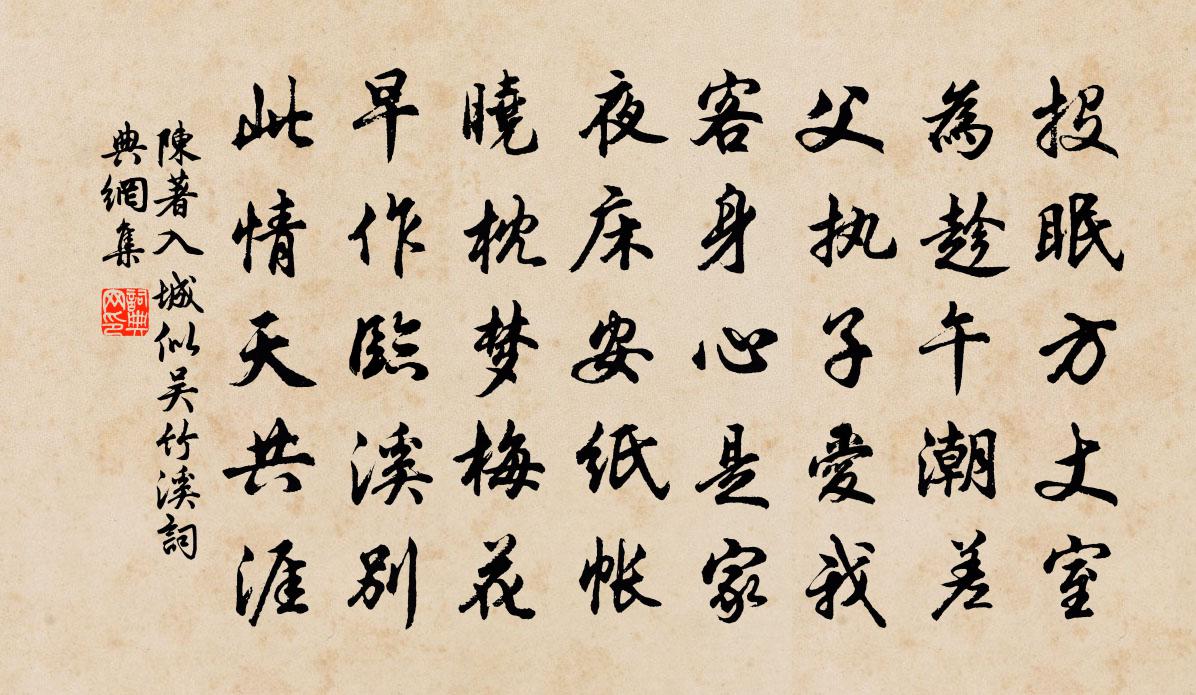 投眠方丈室
為趁午潮差
父执子愛我
客身心是家
夜床安纸帐
曉枕梦梅花
早作臨溪别
此情天共涯
陳著入城似吴竹溪詞
典網集
詞典
网印